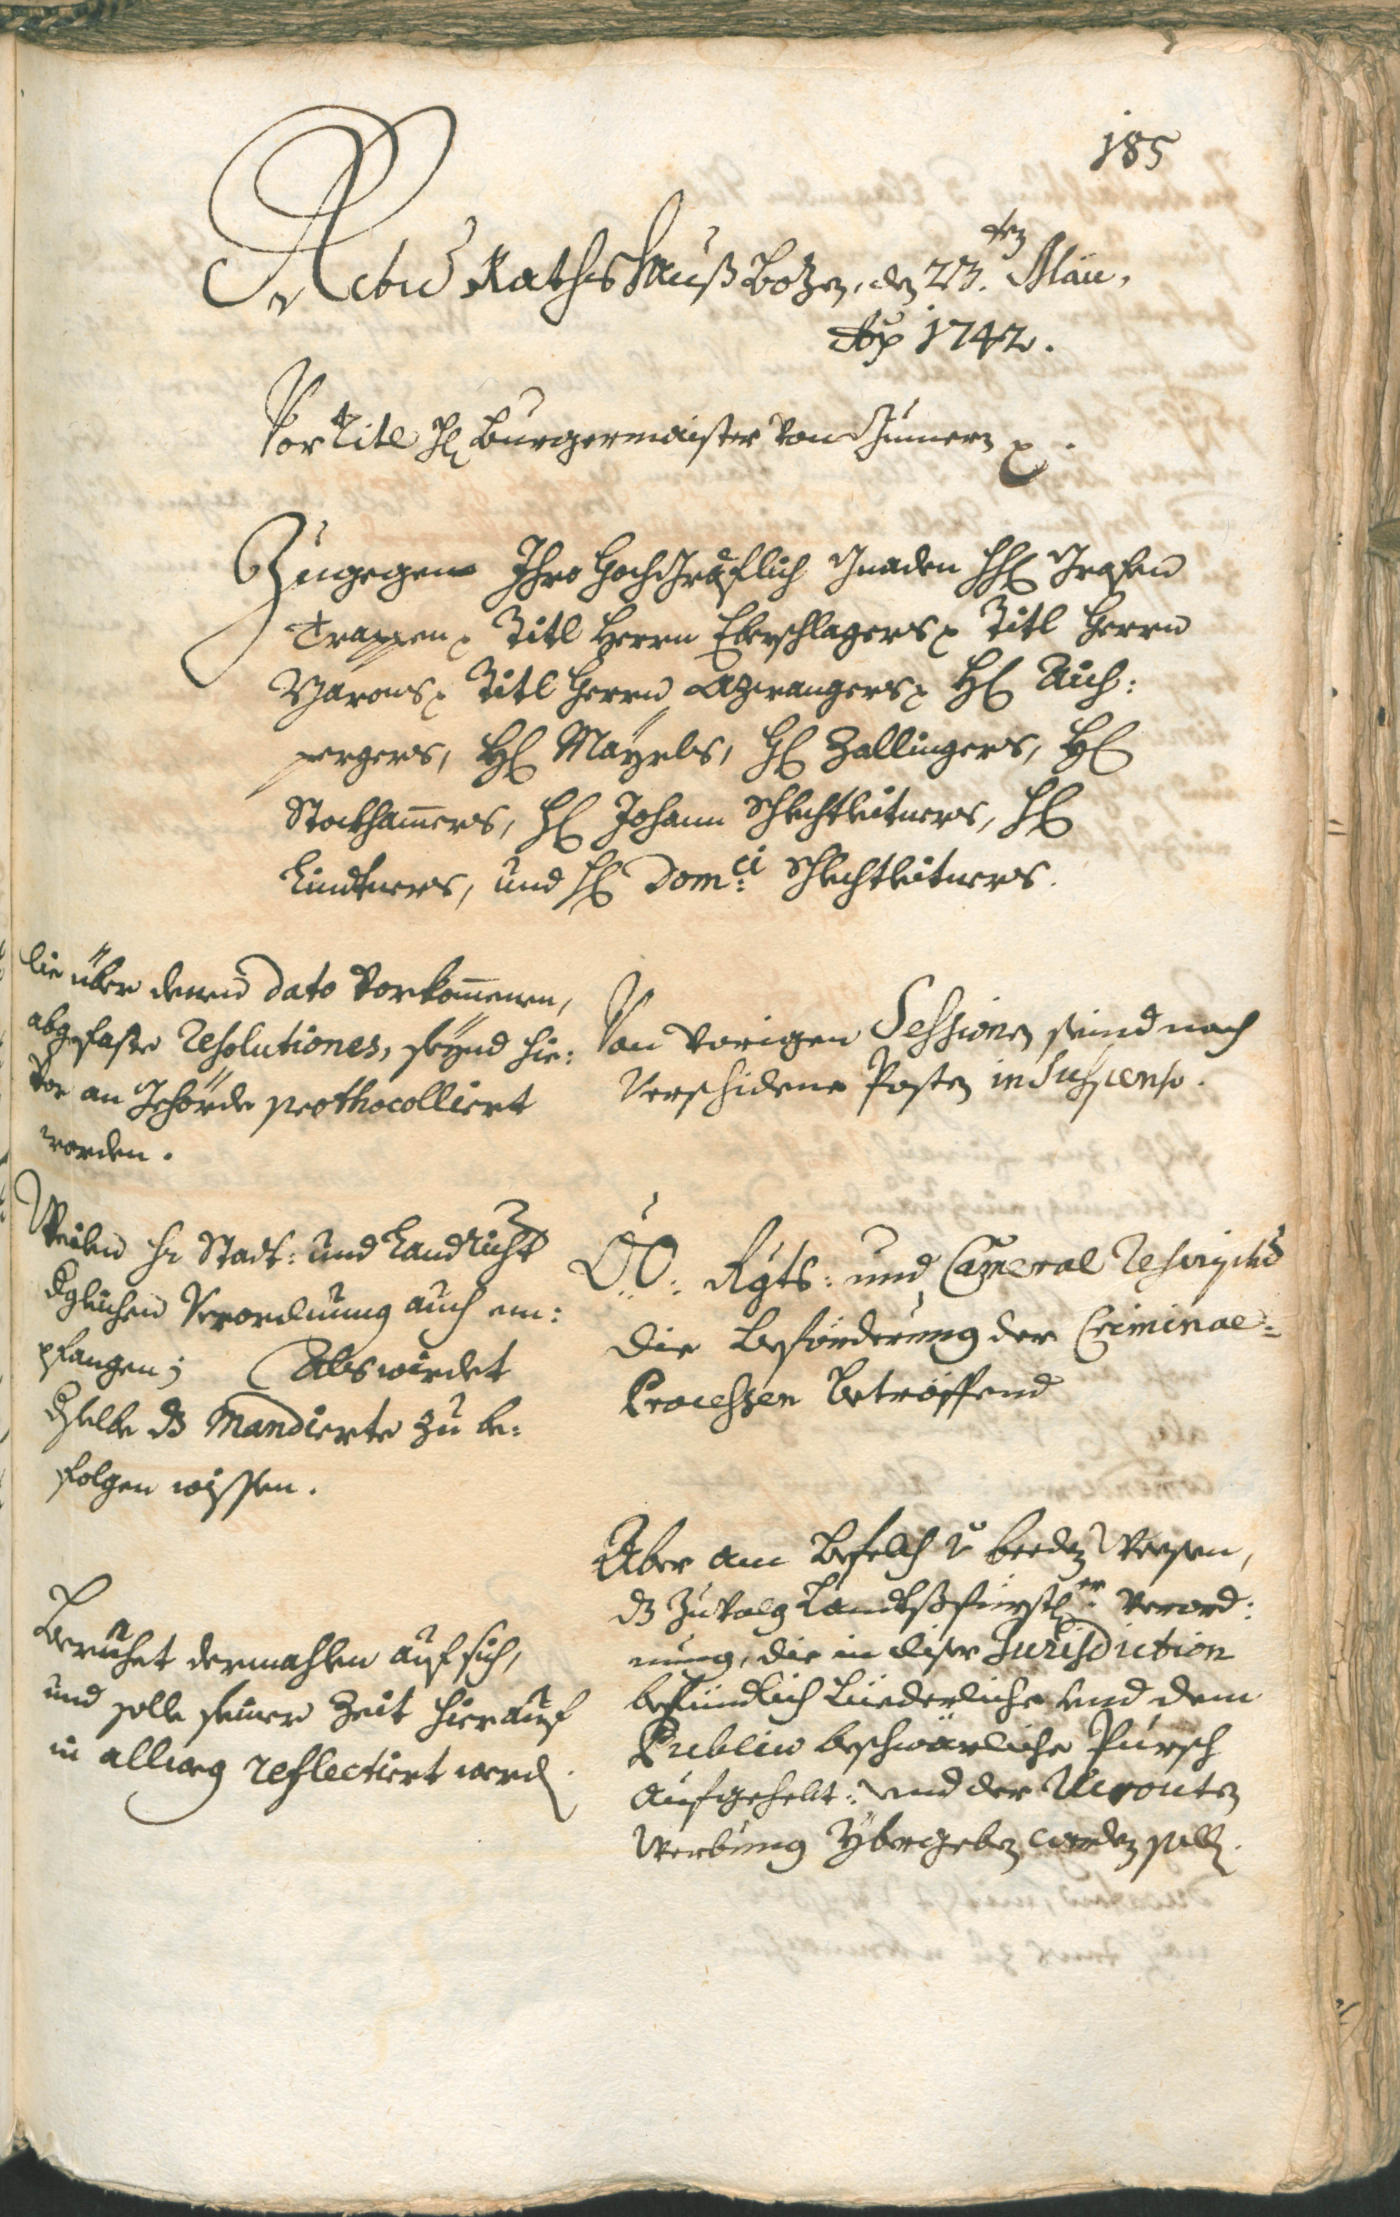 185
Actu Rathshauß Botzen, den 23.ten Maii,
Ao 1742.
Vor Titl H: Burgermaister von Zumern p.
Zugegen Ihro Hochgräflich Gnaden HH: Grafen
Trappen p. Titl Herrn Eberschlagers p. Titl Herrn
Marons p. Titl Herrn Azwangers p. H: Aich:
pergers, H: Mayrls, H: Zallingers, H:
Stockhamers, H: Johann Schlechtleitners, H:
Lindtners, und H: Domci: Schlechtleitners.
Die über denen Dato Vorkomenen,
abgefaste Resolutiones, seynd hie:
vor an Gehörde prothocolliert
worden.
Von vorigen Sessionen seind noch
Verschidene Posten in Suspenso.
Weilen hr Stadt: und Landtricht
dgleichen Verordnung auch em:
pfangen; Als wirdet
dselbe dz Mandierte zu be:
folgen wissen.
ÖÖ: Rgts: und Cameral Rescriptu
die Beförderung der Criminal=
Processen betröffend
Beruhet dermahlen auf sich,
und solle seiner Zeit hierauf
in allweg reflectiert werd.
Aber am Befelch v beeden Weesen,
dz zuvolg Landtsfürstl:er Verord:
nung, die in diser Jurisdiction
befündlich Liederliche und dem
Publico beschwärliche Pursch
aufgehebt: und der Recrouten
Werbung ybergeben werden solln.